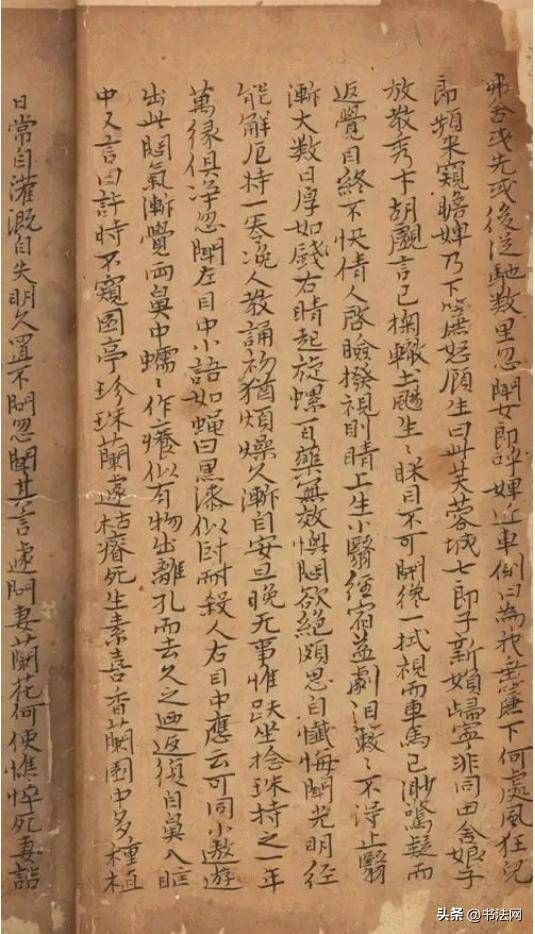 弗舍或先或後従馳数里忽聞女郎呼婢近車側曰為我垂簾下何處風狂兒
郎頻来窺瞻婢乃下簾怒顧生曰此芙蓉城七郎子新婦歸寧非同田舍娘子
放教秀才胡覷言已掬轍土颺生〻眯目不可開纔一拭視而車馬已渺驚疑而
返覺目終不快倩人啓瞼撥視則睛上生小翳經宿益劇泪簌〻不得止翳
漸大数日厚如錢右睛起旋螺百藥無效懊悶欲絶頗思自懺悔聞光明經
能解厄持一卷浼人教誦初猶煩燥久漸自安旦晚无事惟趺坐捻珠持之一年
萬緣俱淨忽聞左目中小語如蝇曰黑漆似叵耐殺人右目中應云可同小遨遊
出此悶氣漸覺兩鼻中蠕〻作癢似有物出離孔而去久之廼返復自鼻入眶
中又言曰許時不窺園亭珍珠蘭遽枯瘠死生素喜香蘭園中多種植
日常自灌溉自失明久置不問忽聞其言遽問妻蘭花何便憔悴死妻詰
头条 @书法网